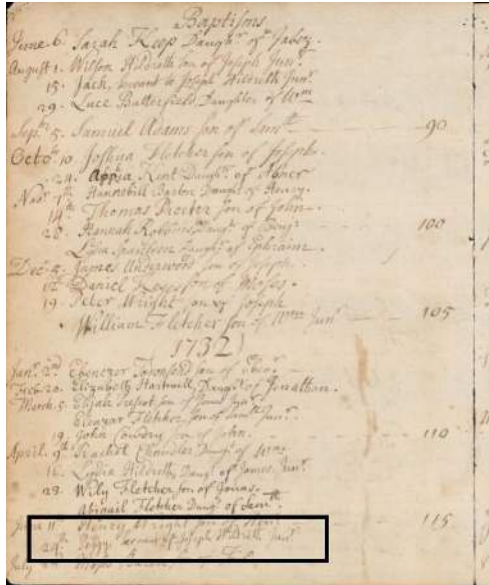 Baptisms
June 6. Sarah Keep Daugh.r of Jabez.
August 1. Wilson Hildreth son of Joseph Jun.r
15. Jack, servant to Joseph Hildreth Jun.r
29. Luce Butterfield Daughter of W.m
Sep.t 5. Samuel Adams son of Sam.ll 90
Octo.r 10. Joshua Fletcher son of Joseph.
24. Appia Kent Daugh.r of Abner
Nov.r 7.th Hannebill Barton Daug.r of Henry.
14.th Thomas Procter son of John.
28. Hannah Robbins Daug.r of Benj.n 100
Lydia Spaulden Daugh.r of Ephraim.
Dec.r 5. James Underwood son of Joseph.
12. Daniel Keyes son of Moses.
19. Peter Wright son of Joseph
William Fletcher son of W.m Jun.r 105
1732
Jan.r 2.d Ebenezer Townsend son of Eben.r
Feb. 20. Elizabeth Hartwell Daug.r of Jonathan.
March 5. Elijah son of Jun.r
Eleazar Fletcher son of Sam.ll Jun.r
19. John Cowdry son of John. 110
April. 9.th Rachel Chandler Daug.r of
16. Lydia Hildreth Daug.r of James Jun.r
23. Wily Fletcher son of Jonas.
Abigail Fletcher Daug.r of Sam.ll
June 11. Henry Wright son of 115
24.th servant of Joseph Hildreth Jun.r
July